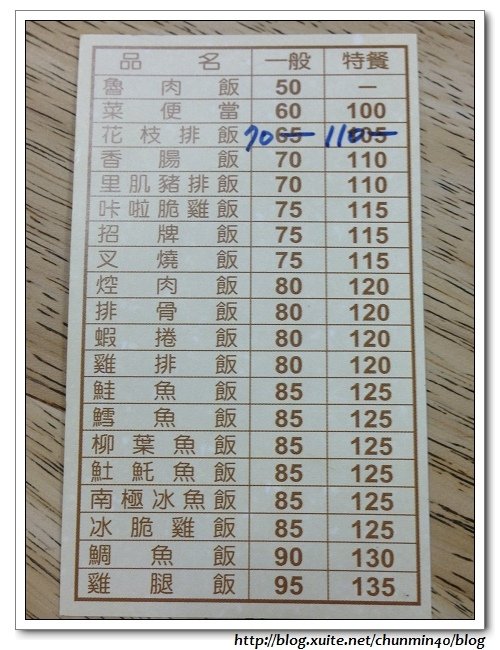 品名 一般 特餐
魯肉飯 50 —
菜便當 60 100
花枝排飯 70 65 110 105
香腸飯 70 110
里肌豬排飯 70 110
咔啦脆雞飯 75 115
招牌飯 75 115
叉燒飯 75 115
焢肉飯 80 120
排骨飯 80 120
蝦捲飯 80 120
雞排飯 80 120
鮭魚飯 85 125
鱈魚飯 85 125
柳葉魚飯 85 125
𩵚魠魚飯 85 125
南極冰魚飯 85 125
冰脆雞飯 85 125
鯛魚飯 90 130
雞腿飯 95 135
http://blog.xuite.net/chunmin40/blog